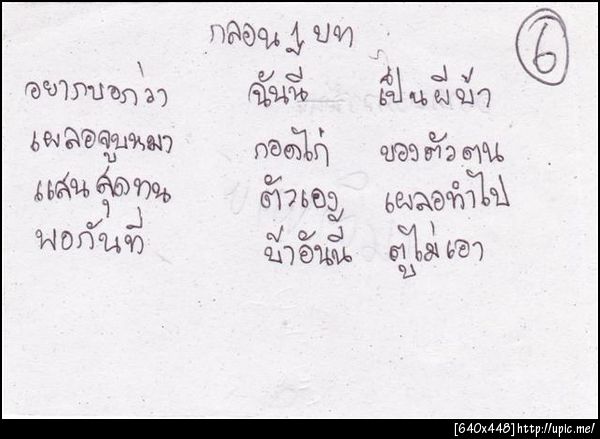 กลอน 1 บท
6
อยากบอกว่า ฉันนี้ เป็นผีบ้า
เผลอจูบหมา กอดไก่ ของตัวตน
แสนสุดทน ตัวเอง เผลอทำไป
พอกันที่ บ้าอันนี้ ตูไม่เอา
[640x448]http://upic.me/